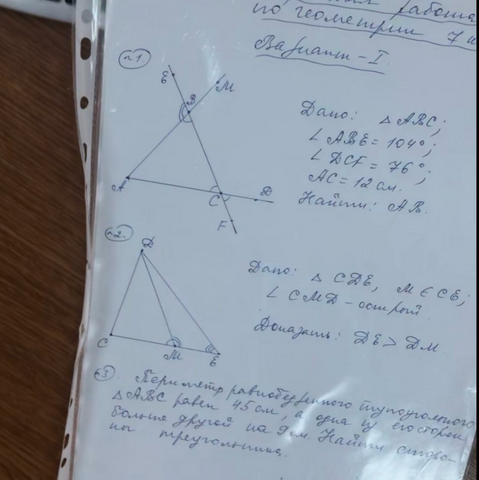 работа
по геометрии 7 к
Вариант - I.
№1
E
M
B
A
C
D
F
Дано: △ ABC;
∠ ABE = 104°;
∠ DCF = 76°;
AC = 12 см.
Найти: AB.
№2
D
C
M
E
Дано: △ CDE, M ∈ CE;
∠ CMD - острый.
Доказать: DE > DM
№3. Периметр равнобедренного тупоугольного
△ ABC равен 45 см, а одна из его сторон
больше другой на 9 см. Найти сторо-
ны треугольника.